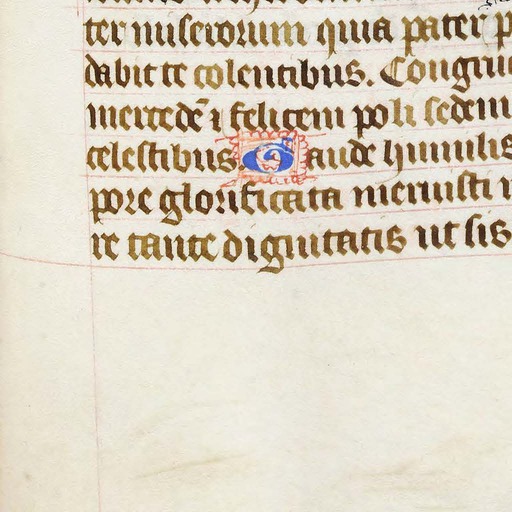 ter miserorum quia pater p
dabit te colentibus. Congru
mercedē ⁊ felicem poli sedem
celestibus. Gaude humilis
pore glorificata meruisti
re tante dignitatis ut sis